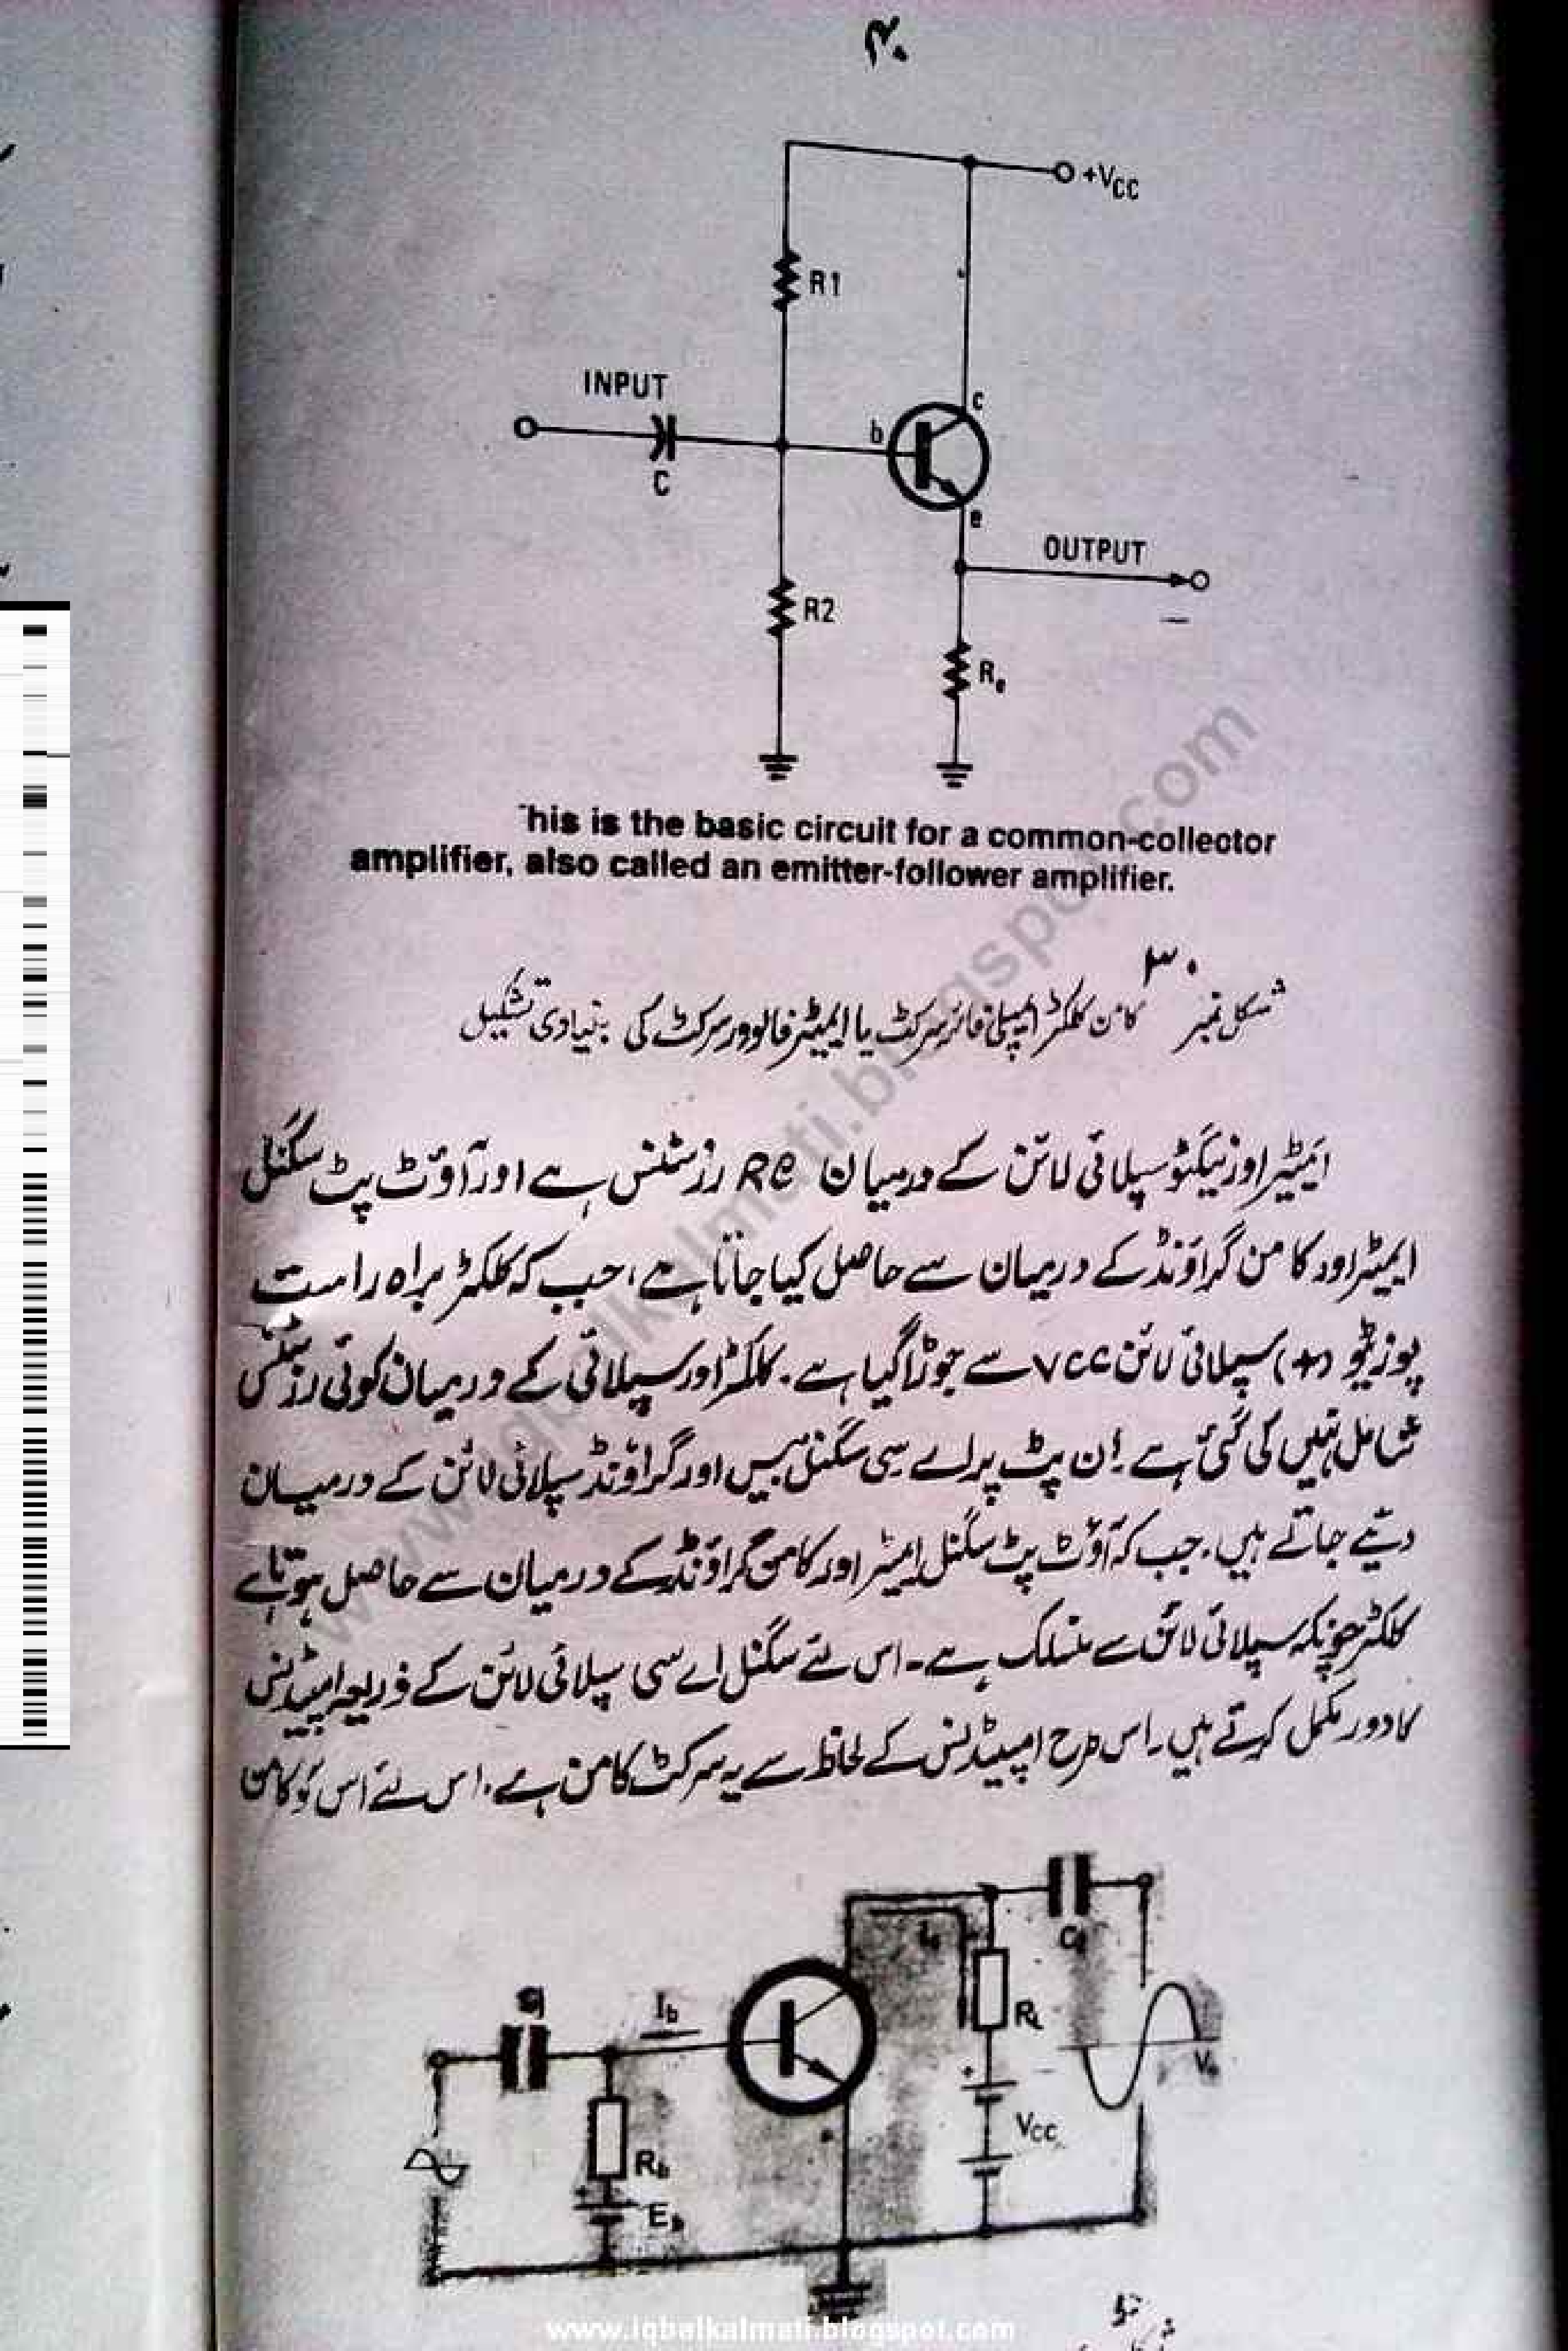 ۴۰
+VCC
R1
INPUT
c
b
C
e
OUTPUT
R2
Re
his is the basic circuit for a common-collector
amplifier, also called an emitter-follower amplifier.
شکل نمبر ۳۰ کامن کلکٹر ایمپلی فائر سرکٹ یا ایمیٹر فالوور سرکٹ کی بنیادی تشکیل
ایمیٹر اور نیگٹو سپلائی لائن کے درمیان Re رزسٹنس ہے اور آؤٹ پٹ سگنل
ایمیٹر اور کامن گراؤنڈ کے درمیان سے حاصل کیا جاتا ہے، جب کہ کلکٹر براہ راست
پوزیٹو (+) سپلائی لائن vcc سے جوڑا گیا ہے۔ کلکٹر اور سپلائی کے درمیان کوئی رزسٹنس
شامل نہیں کی گئی ہے۔ اِن پٹ پر اے سی سگنل بیس اور گراؤنڈ سپلائی لائن کے درمیان
دیئے جاتے ہیں۔ جب کہ آؤٹ پٹ سگنل ایمیٹر اور کامن گراؤنڈ کے درمیان سے حاصل ہوتا ہے
کلکٹر چونکہ سپلائی لائن سے منسلک ہے۔ اس لئے سگنل اے سی سپلائی لائن کے ذریعہ امپیڈنس
کا دور مکمل کرتے ہیں۔ اس طرح امپیڈنس کے لحاظ سے یہ سرکٹ کامن ہے۔ اس لئے اس کو کامن
Ib
RL
Vo
VCC
Rb
Eb
www.iqbalkalmati.blogspot.com
www.iqbalkalmati.blogspot.com